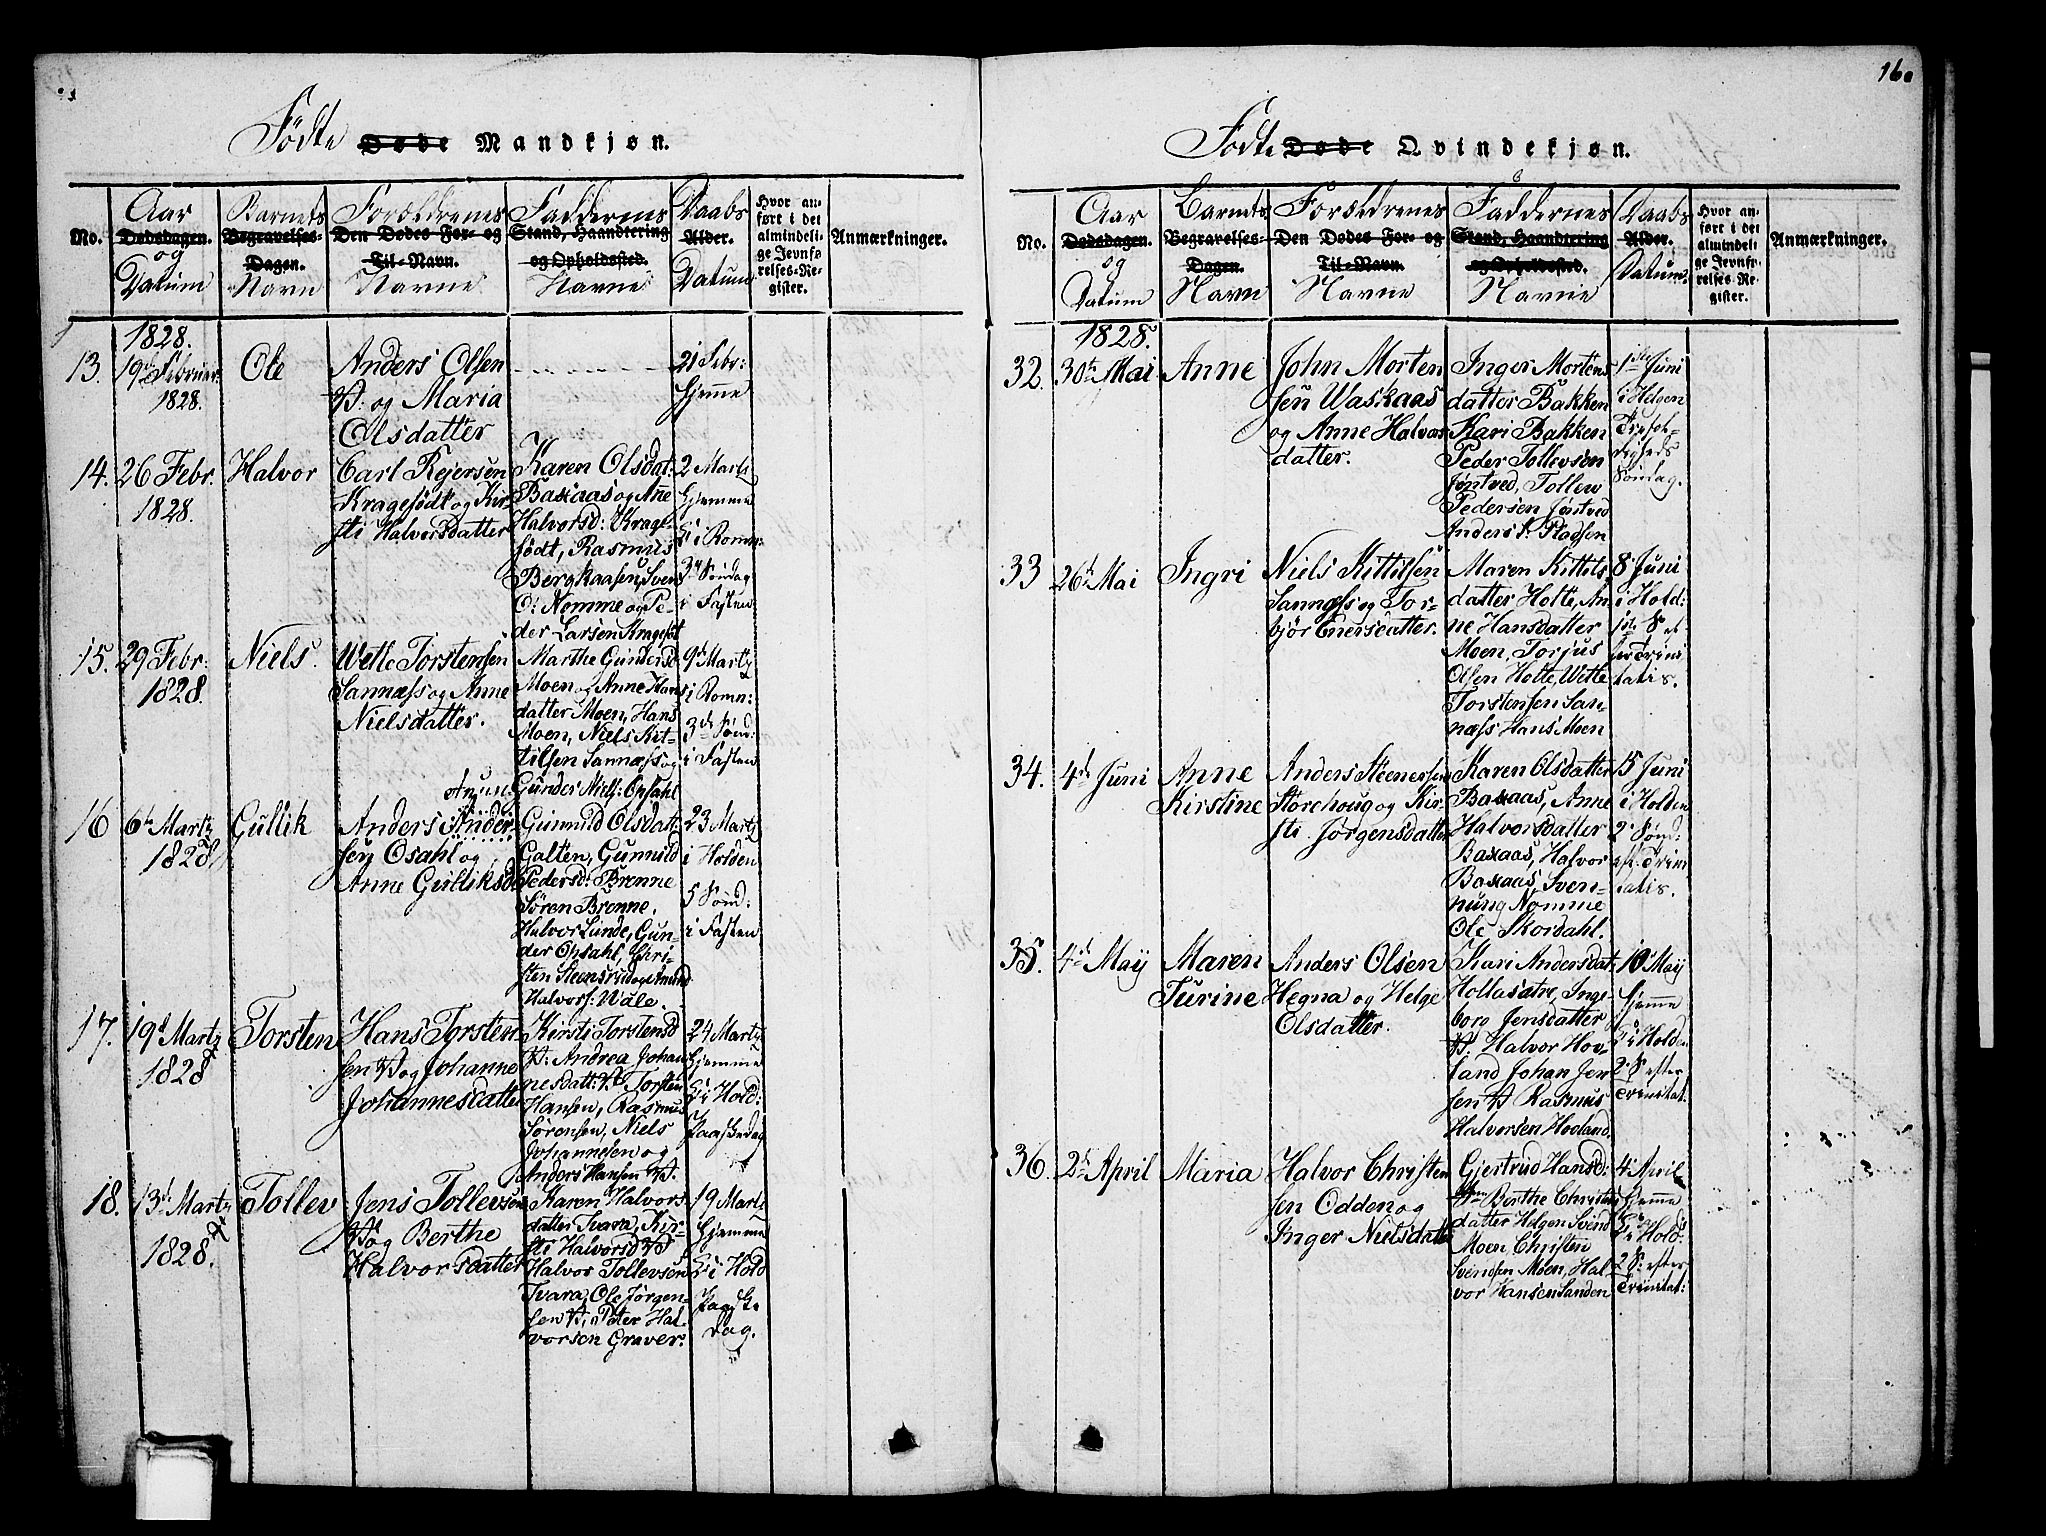 Fødte Døde Mandkjøn.
No.
Aar
Dødsdagen.
og
Datum
Barnets
Begravelses-
Dagen.
Navn
Forældrenes
Den Dødes For- og
Til-Navn.
Navne
Faddernes
Stand, Haandtering
og Opholdssted.
Navne
Daabs
Alder.
Datum
Hvor an-
ført i det
almindeli-
ge Jevnfø-
relses-Re-
gister.
Anmærkninger.
1828.
13.
19d Februar
1828.
Ole
Anders Olsen
og Maria
Olsdatter
21 Febr:
hjemme
14.
26 Febr.
1828.
Halvor
Carl Rejersen
Kragefödt og Kir-
sti Halversdatter
Karen Olsdat:
Baxaas og Anne
Halvorsd: Krage-
födt, Rasmus
Bergkaasen, Sven
O: Nomme og Pe-
der Larsen Kragefödt
2 Marts
hjemme
i Romn:
3d Søndag
i Fasten
15.
29 Febr:
1828.
Niels.
Wetle Torstensen
Sannæss og Anne
Nielsdatter.
Marthe Gundersd
Moen og Anne Hans
datter Moen, Hans
Moen, Niels Kit-
tilsen Sannæss og
Gunder Niels: Opsahl
9d Martz
i Romn:
3d Sønd:
i Fasten
16
6te Martz
1828
Gullik
Anders Ander-
sen Osahl og
Anne Gulliksd
Gunnild Olsdatt:
Galten, Gunnild
Pedersd: Brenne
Søren Brenne,
Halvor Lunde, Gun-
der Opsahl, Chri-
sten Steensrud og Amund
Halvors: Wale.
23 Martz
i Holden
5 Sønd:
i Fasten
17.
19d Martz
1828
Torsten
Hans Torsten-
sen og Johanne
Johannesdatter
Kirsti Torstensd
Andrea Johan
nesdatt: Torsten
Hansen, Rasmus
Sørensen, Niels
Johannesen og
Anders Hansen
24 Martz
hjemme
i Hold:
Paaskedag
18.
13d Martz
1828.
Tollev
Jens Tollevsen
og Berthe
Halvorsdatter
Karen Halvors
datter Tvara, Kir-
sti Halvorsd
Halvor Tollevsen
Tvara, Ole Jørgen-
sen, Peter Hal-
vorsen Graver.
19 Marts
hjemme
i Hold
Paaske
Dag.
160
Fødte Døde Qvindekjøn.
No.
Aar
Dødsdagen.
og
Datum
Barnets
Begravelses-
Dagen.
Navn
Forældrenes
Den Dødes For- og
Til-Navn.
Navne
Faddernes
Stand, Haandtering
og Opholdssted.
Navne
Daabs
Alder.
Datum.
Hvor an-
ført i det
almindeli-
ge Jevnfø-
relses-Re-
gister.
Anmærkninger.
1828.
32.
30te Mai
Anne
John Morten
sen Waskaas
og Anne Halvors
datter.
Inger Mortens
datter Bakken
Kari Bakken
Peder Tollevsen
Jøntved, Tollew
Pedersen Jøntved
Anders P. Pladsen
1ste Juni
i Holden
Trefol-
digheds
Søndag.
33
26d Mai
Ingri
Niels Kittilsen
Sannæss og Tor-
björ Enersdatter.
Maren Kittils
datter Holte, An
ne Hansdatter
Moen, Torjus
Olsen Holte, Wetle
Torstensen San-
næss Hans Moen
8 Juni
i Hold:
1ste S ef-
ter Trini
tatis.
34.
4de Juni
Anne
Kirstine
Anders Steenersen
Storehoug og Kir-
sti Jørgensdatter
Karen Olsdatter
Baxaas, Anne
Halvorsdatter
Baxaas, Halvor
Baxaas, Sven-
nung Nomme
Ole Skordahl.
15 Juni
i Holden
2d Sønd:
eft. Trini
tatis.
35.
4de Maij
Maren
Turine
Anders Olsen
Hegna og Helge
Olsdatter.
Kari Andersdat:
Hollasætre, Inge-
borg Jensdatter
Halvor Hov-
land Johan Jen
sen Rasmus
Halvorsen Hovland.
10 Maij
hjemme
i Holden
2 S efter
Trinitat:
36.
2d April
Maria
Halvor Christen
sen Odden og
Inger Nielsdatter
Gjertrud Hansd:
Berthe Christens
datter Helgen Svend
Moen, Christen
Svendsen Moen, Hal-
vor Hansen Sanden
4 April
hjemme
i Hold:
2 S: efter
Trinitat: